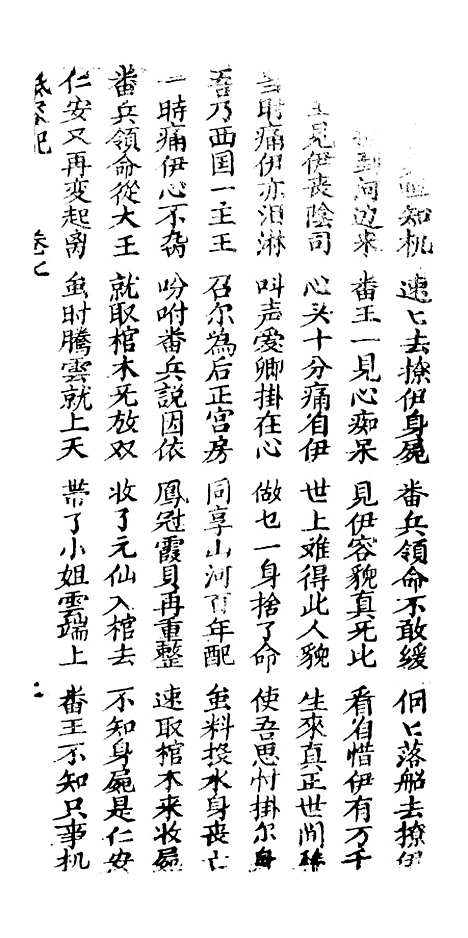 知机 速〻去撩伊身屍 番兵領命不敢緩 仴〻落船去撩伊
到河边来 番王一見心痴呆 見伊容貌真无比 看自惜伊有万千
見伊喪陰司 心头十分痛自伊 世上难得此人貌 生來真正世間
时痛伊亦泪淋 叫声愛卿掛在心 做乜一身捨了命 使吾思忖掛尔身
吾乃西国一主王 召尔為后正宫房 同享山河百年配 虽料投水身喪亡
一時痛伊心不 吩咐番兵説因依 鳳冠霞貝再重整 速取棺木来收屍
番兵領命從大王 就取棺木无放双 收了元仙入棺去 不知身屍是仁安
仁安又再变起离 虽时騰雲就上天 带了小姐雲端上 番王不知只事机
卷七